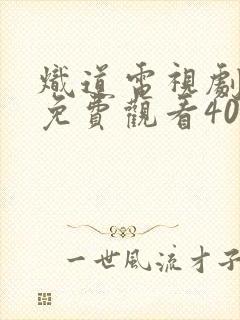 熾道電視劇
免費觀看40
一世風流才子